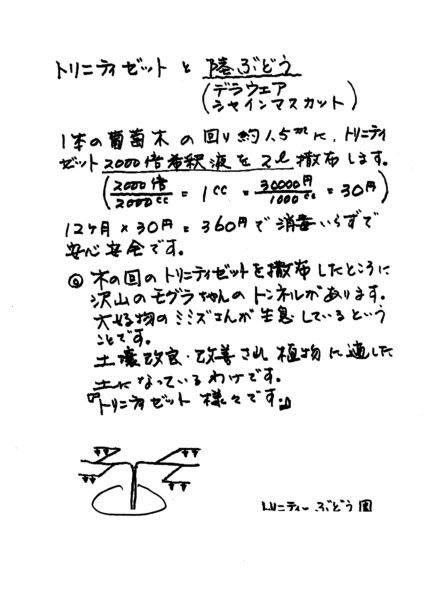 トリニティゼットと 陸ぶどう
(デラウェア
シャインマスカット)
1本の葡萄木の回り約1.5mに、トリニティ
ゼット2000倍希釈液を2ℓ撒布します。
(2000倍/2000cc = 1cc = 30000円/1000cc = 30円)
12ヶ月×30円=360円で消毒いらずで
安心安全です。
◎ 木の回のトリニティゼットを撒布したところに
沢山のモグラちゃんのトンネルがあります。
大好物のミミズさんが生息しているという
ことです。
土壌改良・改善され植物に適した
土になっているわけです。
『トリニティゼット様々です。』
トリニティーぶどう園